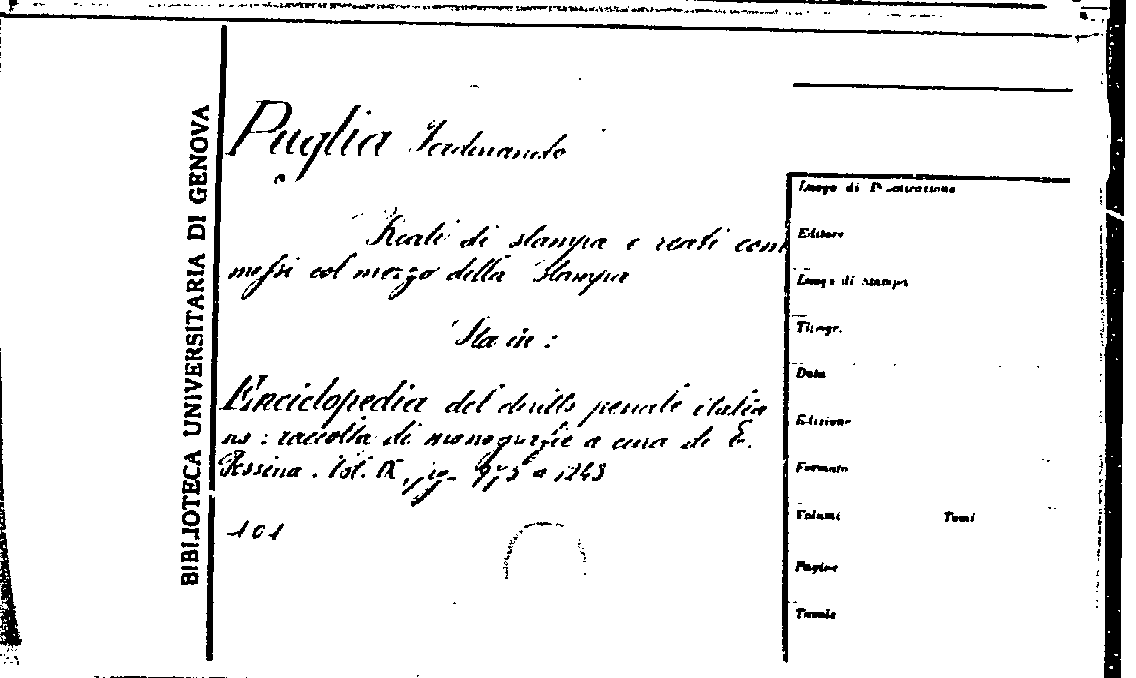 BIBLIOTECA UNIVERSITARIA DI GENOVA
Puglia Ferdinando
Reati di stampa e reati com
messi col mezzo della Stampa
Sta in :
Enciclopedia del diritto penale italia
no : raccolta di monografie a cura di E.
Pessina . Vol. IX , pg. 975 a 1243
101
Luogo di Pubblicazione
Editore
Luogo di stampa
Tipogr.
Data
Edizione
Formato
Volumi Tomi
Pagine
Tavole